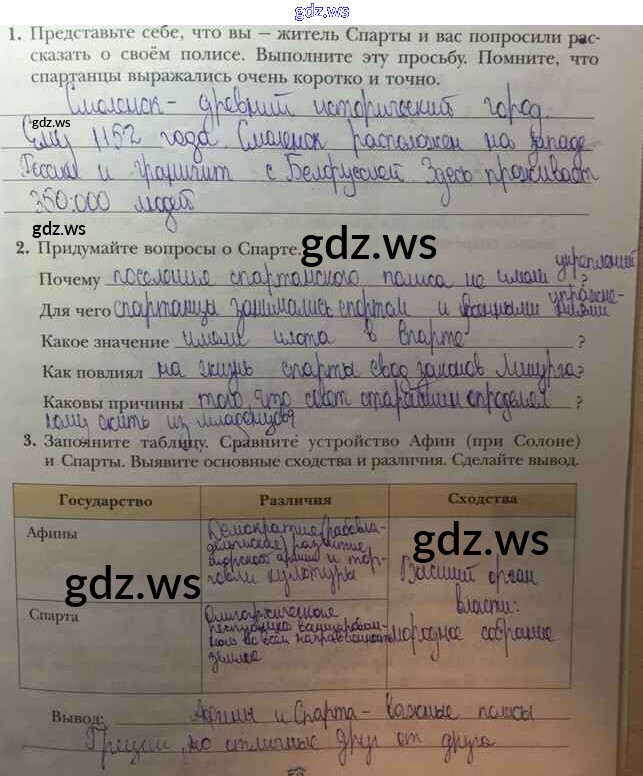 gdz.ws
1. Представьте себе, что вы – житель Спарты и вас попросили рас-
сказать о своём полисе. Выполните эту просьбу. Помните, что
спартанцы выражались очень коротко и точно.
Смоленск - древний исторический город.
gdz.ws
Ему 1152 года. Смоленск расположен на западе
России и граничит с Белоруссией Здесь проживает
350.000 людей
gdz.ws
gdz.ws
2. Придумайте вопросы о Спарте.
Почему поселения спартанского полиса не имели укреплений ?
Для чего спартанцы занимались спортом и военными упражне-
ниями
Какое значение имели илота в Спарте ?
Как повлиял на жизнь спарты свод законов Ликурга?
Каковы причины того, что совет старейшин определял ?
кому жить из младенцев
3. Заполните таблицу. Сравните устройство Афин (при Солоне)
и Спарты. Выявите основные сходства и различия. Сделайте вывод.
Государство Различия Сходства
Афины
Демократия (рабовла-
дельческая) развитие
морского армии и тор-
говли культуры
gdz.ws
gdz.ws
Высший орган
власти:
народное собрание
Спарта
Олигархическая
республика
во всей направленность
земледе
Вывод: Афины и Спарта - важные полисы
Греции, но отличные друг от друга